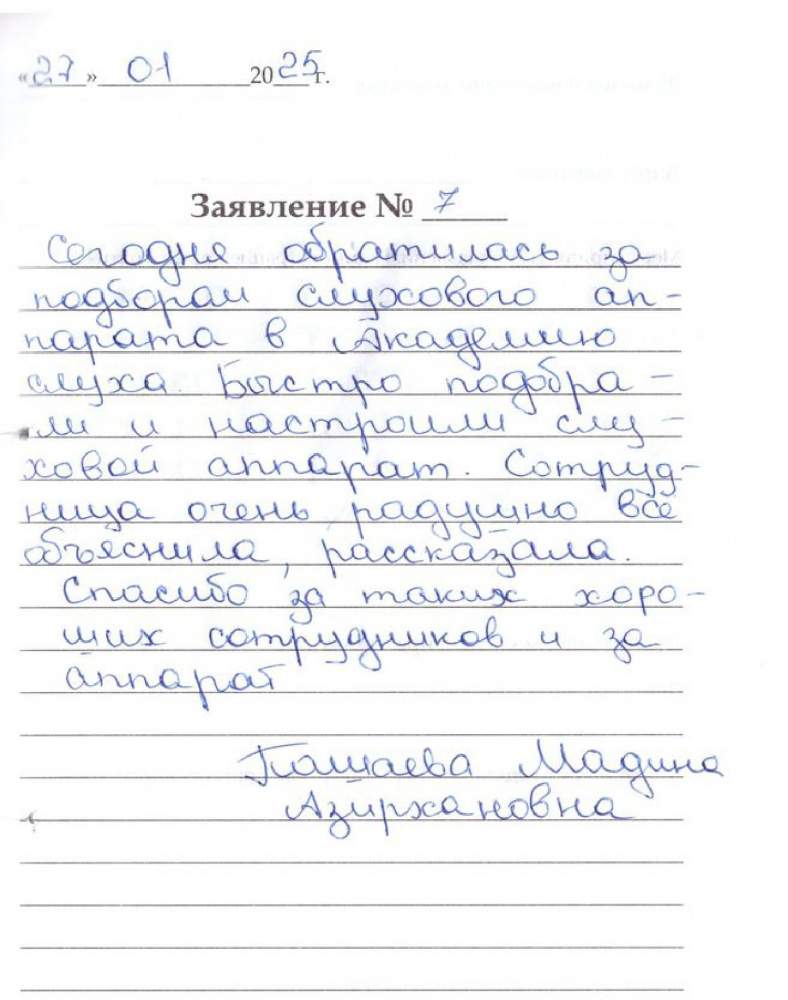 «27» 01 2025 г.
Заявление № 7
Сегодня обратилась за
подбором слухового ап-
парата в Академию
слуха. Быстро подобра-
ли и настроили слу-
ховой аппарат. Сотруд-
ница очень радушно все
объяснила, рассказала.
Спасибо за таких хоро-
ших сотрудников и за
аппарат
Пашаева Мадина
Азирхановна